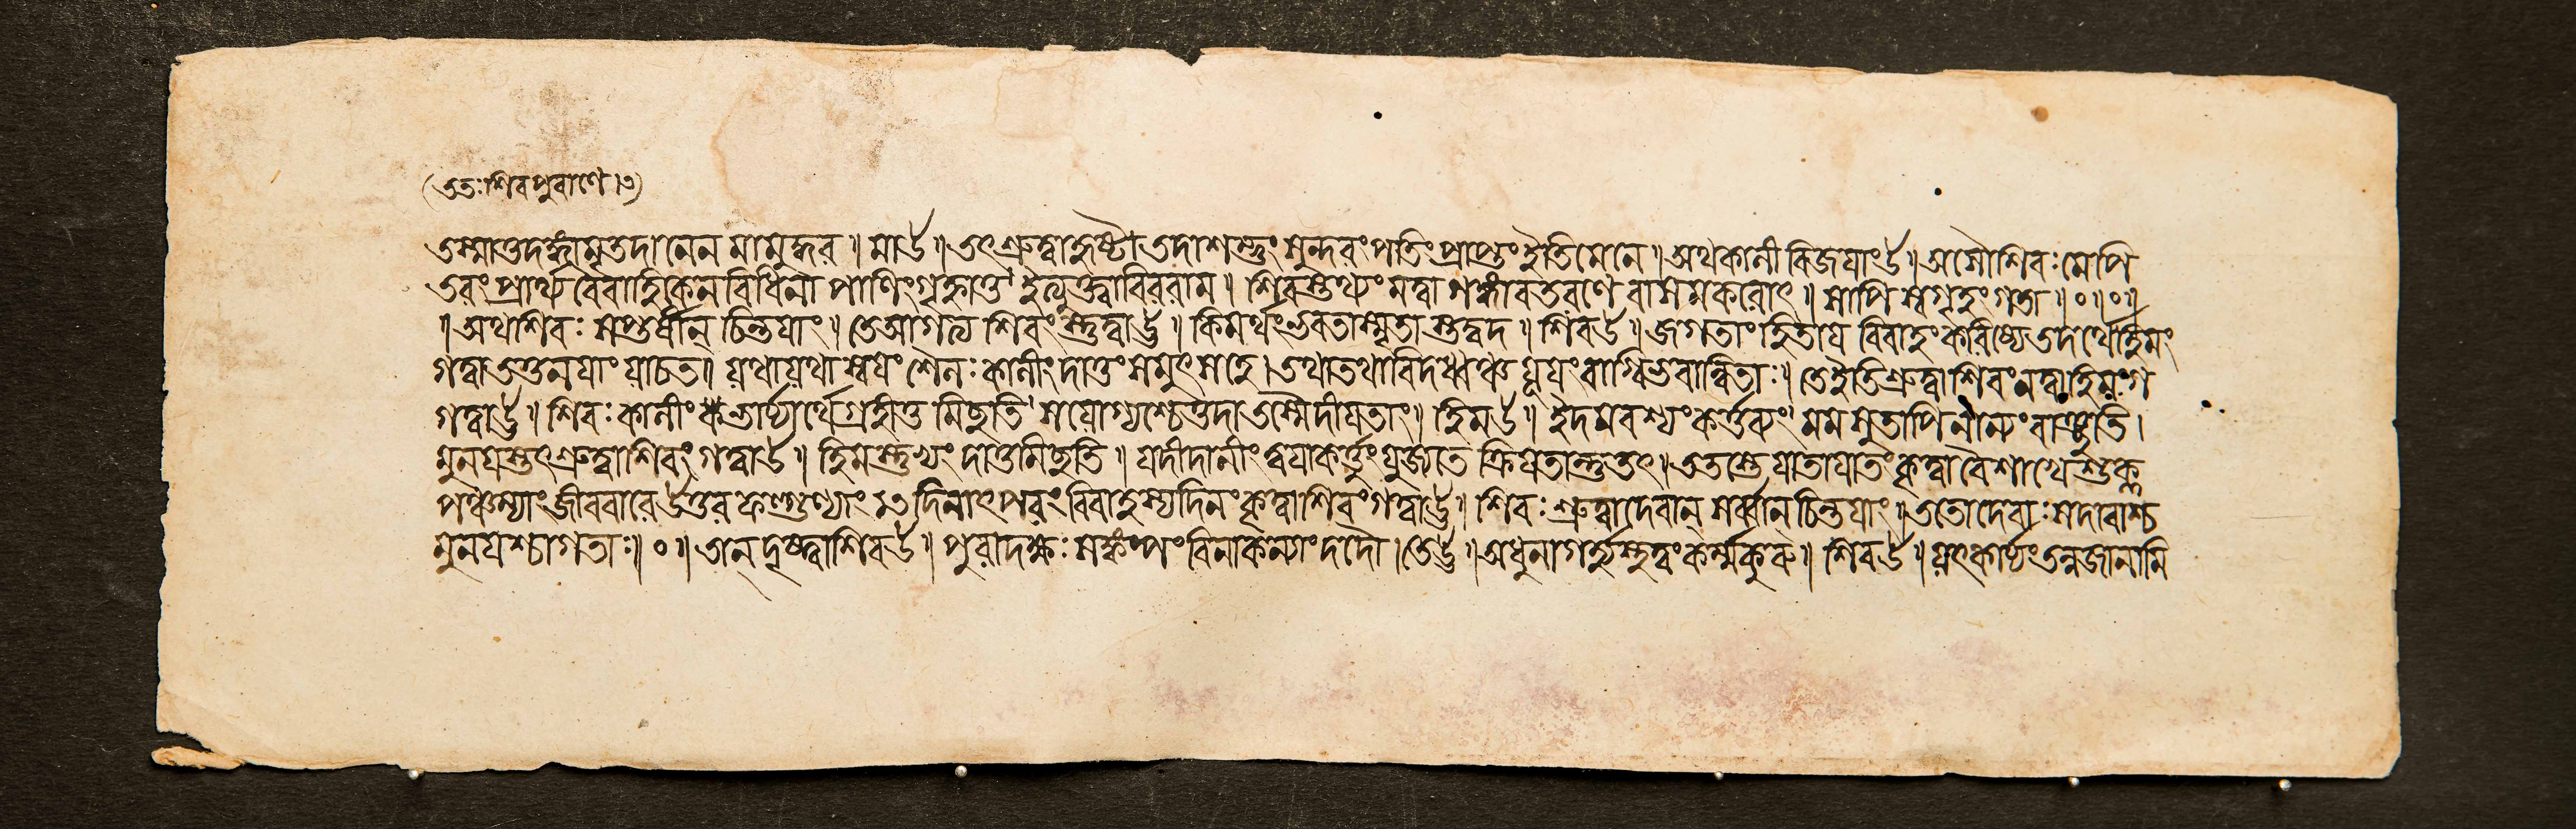 (ততঃ শিবপুরাণে।৩)
তস্মাত্তদঙ্গামৃতদানেন মামুদ্ধর॥ মাউ॥ তৎশ্রুত্বা তদাশম্ভুং সুন্দরং পতিং প্রাপ্তুং ইতি মেনে॥ অথকালী বিজয়াংউ॥ অসৌশিবঃ মেপি
এবং প্রার্থ্য বৈবাহিকেন বিধিনা পাণিং গৃহ্ণাতু ইত্যুক্ত্বা বিররাম॥ শিবস্তথ্যং মত্বা গঙ্গাবতরণে বাসমকরোৎ॥ সাপি স্বগৃহং গতা॥০॥০॥
॥ অথশিবঃ সপ্তর্ষীন্ চিন্তয়াং॥ তেআগত্য শিবং স্তুত্বাউ॥ কিমর্থং ভবতাস্মৃতা স্তদ্বদ॥ শিবউ॥ জগতাং হিতায় বিবাহং করিষ্যে তদর্থে হিমং
গত্বা তত্তনয়াং যাচত॥ যথাযথা স্বয়ং শৈলঃ কালীং দাতুং সমুৎসহে। তথাতথা বিদধ্বঞ্চ যূয়ং বাগ্বিভবান্বিতাঃ॥ তেইতিশ্রুত্বা শিবং নত্বা হিমং গ
গত্বাউ॥ শিবঃ কালীং ভার্য্যার্থে গ্রহীতু মিছতি সযোগ্যশ্চেত্তদা তস্মৈদীয়তাং॥ হিমউ॥ ইদমবশ্যং কর্ত্তব্যং মম সুতাপি নান্যং বাঞ্ছতি।
মুনয়স্তৎশ্রুত্বা শিবং গত্বাউ॥ হিমস্তুভ্যং দাতুমিছতি॥ যদীদানীং ত্বয়াকর্ত্তুং যুজ্যতে ক্রিয়তান্তুতৎ॥ ততস্তে যাতায়াতং কৃত্বা বৈশাখে শুক্ল
পঞ্চম্যাং জীববারে উত্তরফল্গুণ্যাং দিনাৎপরং বিবাহস্যদিনং কৃত্বা শিবং গত্বাউ॥ শিবঃ শ্রুত্বা দেবান্ সর্ব্বান্ চিন্তয়াং॥ ততোদেবাঃ সদারাশ্চ
মুনয়শ্চাগতাঃ॥০॥ তান্ দৃষ্ট্বা শিবউ॥ পুরাদক্ষঃ সঙ্কল্পং বিনাকন্যাং দদৌ। তেউ॥ অধুনা কর্ম্মকুরু॥ শিবউ॥ যৎকার্য্যং তন্নজানামি